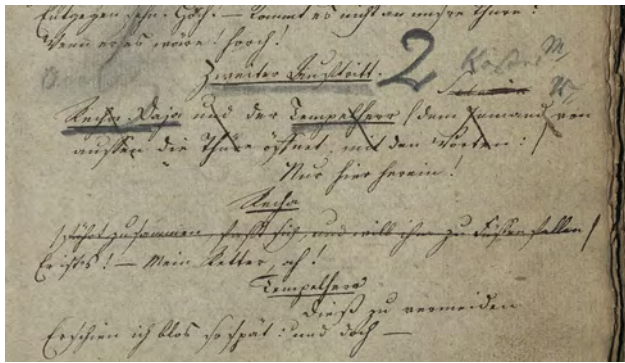 Entgegen sehn. Horch! — kommt es nicht an unsre Thüre?
Wenn er es wäre! horch!
Zweiter Auftritt. 2
Recha. Daja und der Tempelherr /:dem Jemand von
aussen die Thüre öffnet, mit den Worten:/
Nur hier herein!
Recha
/fährt zusammen, faßt sich, und will ihm zu Füssen fallen/
Er ist's! — Mein Retter, ah!
Tempelherr
Dieß zu vermeiden
Erschien ich blos so spät: und doch —